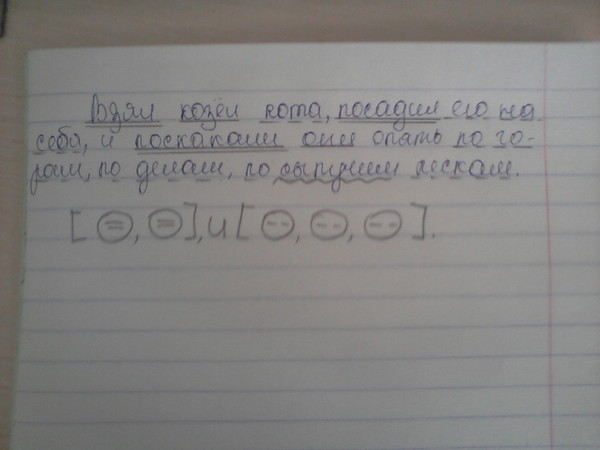 Взял козёл кота, посадил его на
себя, и поскакали они опять по го-
рам, по долам, по сыпучим пескам.
[ (=), (=) ], и [ (--), (--), (--) ].